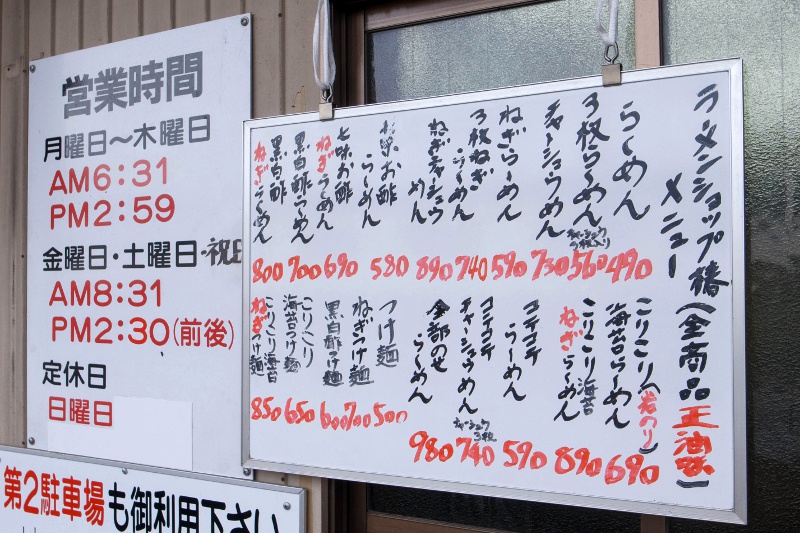 営業時間
月曜日〜木曜日
AM6:31
PM2:59
金曜日・土曜日・祝日
AM8:31
PM2:30(前後)
定休日
日曜日
第2駐車場も御利用下さい
ラーメンショップ椿(全商品正油味)
メニュー
らーめん 490
3枚らーめん 560
チャーシュウ3枚入り
チャーシュウめん 730
ねぎらーめん 590
3枚ねぎらーめん 740
ねぎチャーシュウめん 890
お酢らーめん 580
七味お酢ねぎらーめん 690
黒白酢つーめん 700
黒白酢ねぎらーめん 800
こりこり(岩のり)海苔らーめん 690
こりこり海苔ねぎらーめん 890
コテコテらーめん 590
コテコテチャーシュウめん 740
チャーシュウ3枚
全部のせらーめん 980
つけ麺 500
ねぎつけ麺 700
黒白酢つけ麺 600
こりこり海苔つけ麺 650
こりこり海苔ねぎつけ麺 850